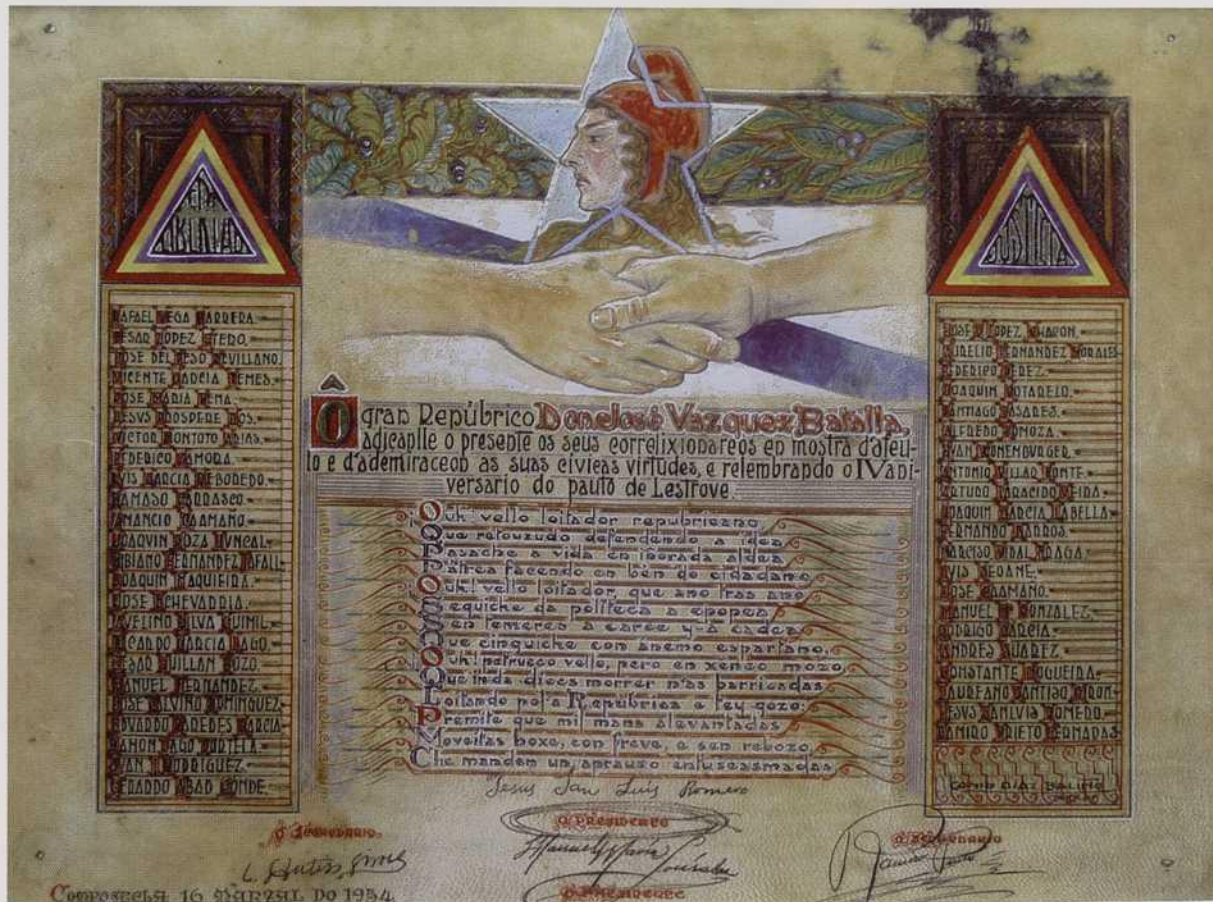 RAFAEL VEGA BARRERA.
CESAR LOPEZ OTERO.
JOSE DEL PESO SEVILLANO.
VICENTE GARCIA TEMES.
JOSE MARIA PENA.
JESUS PROSPERE
VICTOR MONTOTO ARIAS.
FEDERICO ZAMORA.
LUIS GARCIA REBOREDO.
DAMASO CARRASCO.
AMANCIO CAAMAÑO.
JOAQUIN POZA JUNCAL.
BIBIANO FERNANDEZ TAFALL.
JOAQUIN MAQUIEIRA.
JOSE ECHEVARRIA.
AVELINO SILVA GUIMIL.
RICARDO GARCIA LAGO.
CESAR GUILLAN POZO.
MANUEL FERNANDEZ.
JOSE CALVINO DOMINGUEZ.
EDUARDO PAREDES GARCIA.
RAMON LAGO PORTELA.
JUAN RODRIGUEZ.
GERARDO ABAD CONDE.
Ô gran Repúbrico Don José Vazquez Batalla,
adicanlle o presente os seus correlixionareos en mostra d'afeu-
to e d'ademiraceon as suas cívicas virtudes, e relembrando o IV ani-
versario do pauto de Lestrove.
¡Ouh! vello loitador repubricano
Que retouzudo defendendo a idea
Pasache a vida en iñorada aldea
Pátrea facendo en ben do cidadano
¡Ouh! vello loitador, que ano tras ano
Sequiche da políteca a epopea
Sen temeres a carce y-a cadea
Que cinguiche con ánemo espartano,
¡Ouh! patrueco vello, pero en xenco mozo
Que inda dices morrer n'as barricadas
Loitando pol'a Repúbrica e ley gozo:
Premite que mil mans alevantadas
Moveitas hoxe, con freve, e sen rebozo,
Che manden un aprauso entuseasmadas
Jesus San Luis Romero
JOSE LOPEZ CHARON.
AURELIO FERNANDEZ MORALES
FEDERICO PEREZ.
JOAQUIN COTARELO.
SANTIAGO CASARES.
ALFREDO SOMOZA.
JUAN
ANTONIO VILLAR PONTE.
ARTURO TARACIDO VEIRA.
JOAQUIN GARCIA LABELLA.
FERNANDO BARROS.
NARCISO VIDAL FRAGA.
LUIS SEOANE.
JOSE CAAMAÑO.
MANUEL GONZALEZ.
RODRIGO GARCIA.
ANDRES SUAREZ.
CONSTANTE NOGUEIRA.
LAUREANO SANTISO GIRON.
JESUS SANLUIS ROMERO.
RAMIRO PRIETO BERNADAS.
CAMILO DIAZ BALIÑO
O SECREDARIO.
O PRESIDENTE
O SECREDARIO
O PRESIDENTE
COMPOSTELA, 16 MARZAL DO 1934